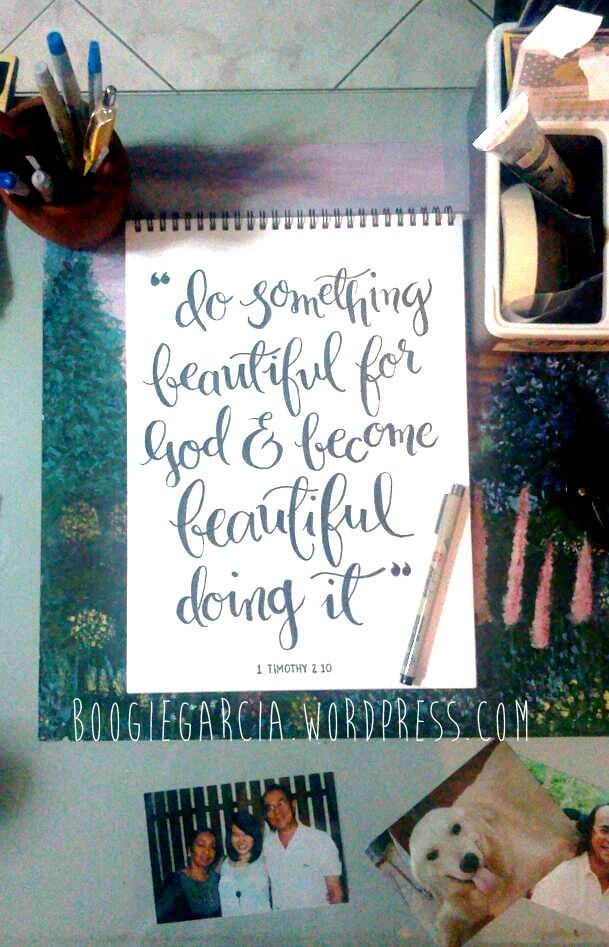 “do something
beautiful for
God & become
beautiful
doing it”
1 TIMOTHY 2 10
BOOGIEGARCIA.WORDPRESS.COM